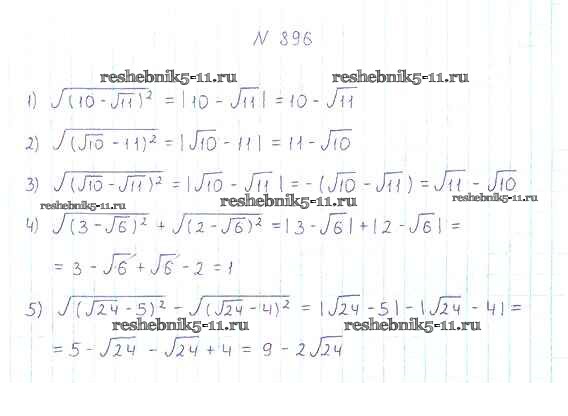 N 396
reshebnik5-11.ru reshebnik5-11.ru
1) √(10 - √11)² = |10 - √11| = 10 - √11
2) √(√10 - 11)² = |√10 - 11| = 11 - √10
3) √(√10 - √11)² = |√10 - √11| = -(√10 - √11) = √11 - √10
reshebnik5-11.ru reshebnik5-11.ru
4) √(3 - √6)² + √(2 - √6)² = |3 - √6| + |2 - √6| =
= 3 - √6 + √6 - 2 = 1
5) √(√24 - 5)² - √(√24 - 4)² = |√24 - 5| - |√24 - 4| =
reshebnik5-11.ru reshebnik5-11.ru
= 5 - √24 - √24 + 4 = 9 - 2√24